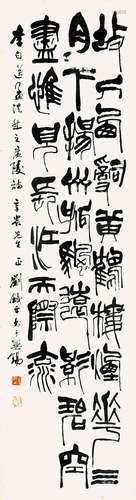 故人西辭黃鶴樓煙花三
月下揚州孤帆遠影碧空
盡惟見長江天際流
李白送孟浩然之廣陵詩 先生 正
劉鐵平書于無錫